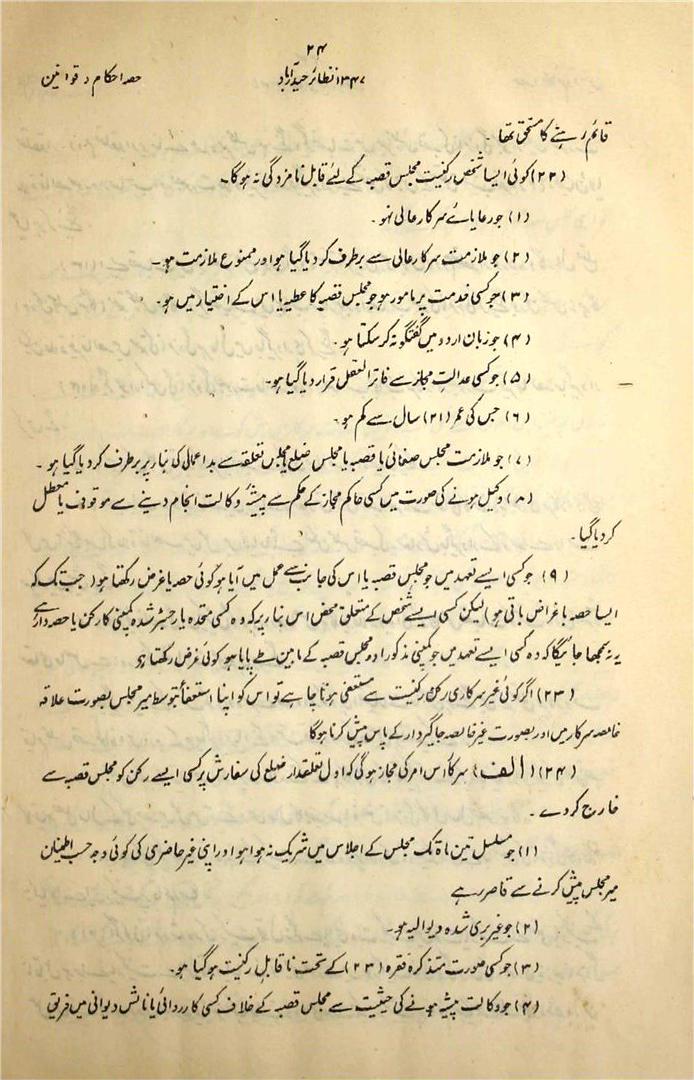 ۲۴
حصہ احکام و قوانین
۱۳۴۷ نظائر حیدرآباد
قائم رہنے کا مستحق تھا ۔
(۲۲) کوئی ایسا شخص رکنیت مجلس قصبہ کے لئے قابل نامزدگی نہ ہوگا۔
(۱) جو رعایائے سرکار عالی نہو ۔
(۲) جو ملازمت سرکار عالی سے برطرف کردیا گیا ہو اور ممنوع ملازمت ہو۔
(۳) جو کسی خدمت پر مامور ہو جو مجلس قصبہ کا عطیہ یا اس کے اختیار میں ہو۔
(۴) جو زبان اردو میں گفتگو نہ کرسکتا ہو۔
(۵) جو کسی عدالت مجاز سے فاتر العقل قرار دیا گیا ہو۔
(۶) جس کی عمر (۲۱) سال سے کم ہو۔
(۷) جو ملازمت مجلس صفائی یا قصبہ یا مجلس ضلع یا مجلس تعلقہ سے بد اعمالی کی بناء پر برطرف کردیا گیا ہو ۔
(۸) وکیل ہونے کی صورت میں کسی حاکم مجاز کے حکم سے پیشۂ وکالت انجام دینے سے موقوف یا معطل
کردیا گیا ۔
(۹) جو کسی ایسے تعہد میں جو مجلس قصبہ یا اس کی جانب سے عمل میں آیا ہو کوئی حصہ یا غرض رکھتا ہو (جب تک کہ
ایسا حصہ یا غراض باقی ہو) لیکن کسی ایسے شخص کے متعلق محض اس بناء پر کہ وہ کسی متحدہ یا رجسٹر شدہ کمپنی کا رکن یا حصہ دار ہے
یہ نہ سمجھا جائیگا کہ وہ کسی ایسے تعہد میں جو کمپنی مذکور اور مجلس قصبہ کے مابین طے پایا ہو کوئی غرض رکھتا ہو
(۲۳) اگر کوئی غیر سرکاری رکن رکنیت سے مستعفی ہونا چاہے تو اس کو اپنا استعفأ بتوسط میر مجلس بصورت علاقہ
خالصہ سرکار میں اور بصورت غیر خالصہ جاگیردار کے پاس پیش کرنا ہوگا
(۲۴) (الف) سرکار اس امر کی مجاز ہوگی کہ اول تعلقدار ضلع کی سفارش پر کسی ایسے رکن کو مجلس قصبہ سے
خارج کردے ۔
(۱) جو مسلسل تین ماہ تک مجلس کے اجلاس میں شریک نہ ہوا ہو اور اپنی غیر حاضری کی کوئی وجہ حسب اطمینان
میر مجلس پیش کرنے سے قاصر رہے
(۲) جو غیر بری شدہ دیوالیہ ہو۔
(۳) جو کسی صورت متذکرہ فقرہ (۲۳) کے تحت ناقابل رکنیت ہوگیا ہو۔
(۴) جو وکالت پیشہ ہونے کی حیثیت سے مجلس قصبہ کے خلاف کسی کارروائی یا نالش دیوانی میں فریق